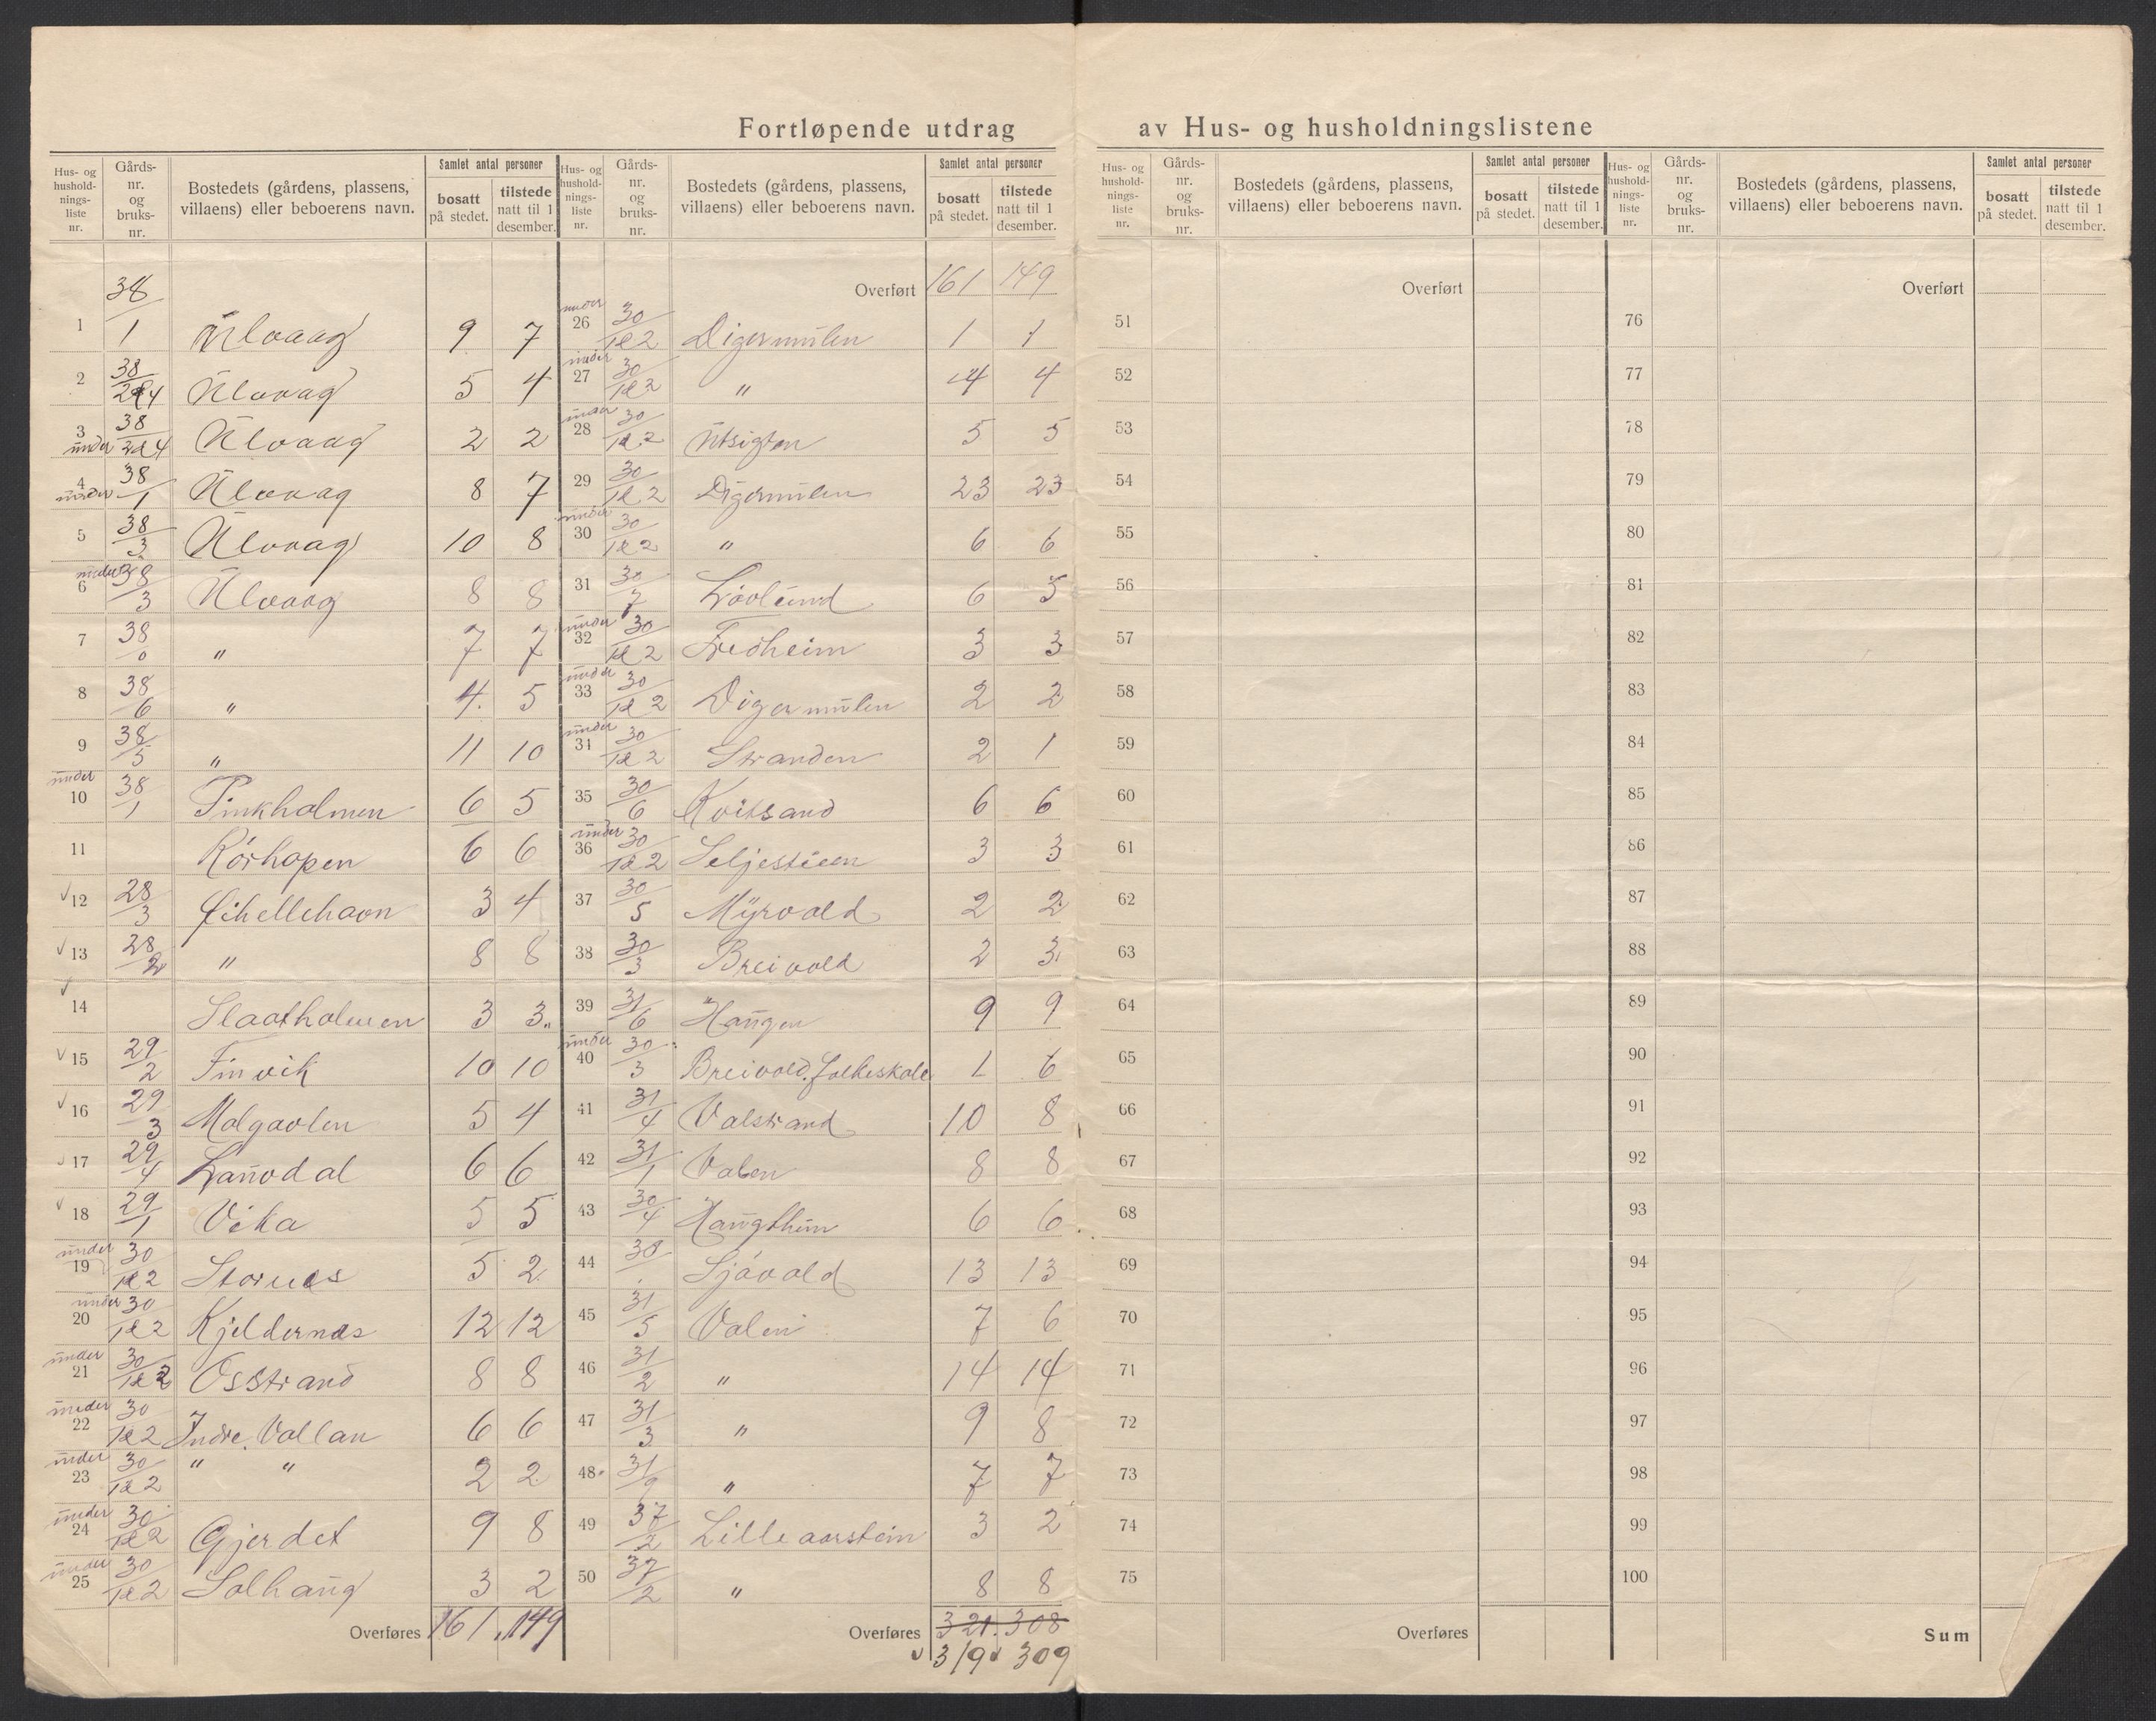 Fortløpende utdrag av Hus- og husholdningslistene
Hus- og husholdnings-liste nr. | Gårds-nr. og bruks-nr. | Bostedets (gårdens, plassens, villaens) eller beboerens navn. | Samlet antal personer bosatt på stedet. | tilstede natt til 1 desember.
1 38/1 Ulvaag 9 7
2 38/2&4 Ulvaag 5 4
3 under 38/2&4 Ulvaag 2 2
4 under 38/1 Ulvaag 8 7
5 38/3 Ulvaag 10 8
6 under 38/3 Ulvaag 8 8
7 38/ " 7 7
8 38/6 " 4 5
9 38/5 " 11 10
10 under 38/1 Finkholmen 6 5
11 Rörhopen 6 6
12 28/3 6 3 4
13 28/2 " 8 8
14 Slaatholmen 3 3
15 29/2 Finvik 10 10
16 29/3 Molgavlen 5 4
17 29/4 Lauvdal 6 6
18 29/1 Vika 5 5
19 under 30/1&2 Stornes 5 2
20 under 30/1&2 Kjeldernes 12 12
21 under 30/1&2 Osstrand 8 8
22 under 30/1&2 Indre Vollan 6 6
23 under 30/1&2 " " 2 2
24 under 30/1&2 Gjerdet 9 8
25 under 30/1&2 Solhaug 3 2
Overføres 161 149
Hus- og husholdnings-liste nr. | Gårds-nr. og bruks-nr. | Bostedets (gårdens, plassens, villaens) eller beboerens navn. | Samlet antal personer bosatt på stedet. | tilstede natt til 1 desember.
Overført 161 149
26 under 30/1&2 Digermulen 1 1
27 under 30/1&2 " 4 4
28 under 30/1&2 Utsigten 5 5
29 30/1&2 Digermulen 23 23
30 under 30/1&2 " 6 6
31 30/7 Lövlund 6 5
32 under 30/1&2 Fredheim 3 3
33 under 30/1&2 Digermulen 2 2
31 under 30/1&2 Stranden 2 1
35 30/6 Kvitsand 6 6
36 under 30/1&2 3 3
37 30/5 Myrvold 2 2
38 30/3 Breivold 2 3
39 31/6 Haugen 9 9
40 under 30/3 Breivold folkeskole 1 6
41 31/4 Valstrand 10 8
42 31/1 Valen 8 8
43 30/4 6 6
44 30 Sjövold 13 13
45 31/5 Valen 7 6
46 31/2 " 14 14
47 31/3 " 9 8
48 31/9 " 7 7
49 37/2 Lille aarstein 3 2
50 37/2 " 8 8
Overføres 321 308
319 309
Hus- og husholdnings-liste nr. | Gårds-nr. og bruks-nr. | Bostedets (gårdens, plassens, villaens) eller beboerens navn. | Samlet antal personer bosatt på stedet. | tilstede natt til 1 desember.
Overført
51
52
53
54
55
56
57
58
59
60
61
62
63
64
65
66
67
68
69
70
71
72
73
74
75
Overføres
Hus- og husholdnings-liste nr. | Gårds-nr. og bruks-nr. | Bostedets (gårdens, plassens, villaens) eller beboerens navn. | Samlet antal personer bosatt på stedet. | tilstede natt til 1 desember.
Overført
76
77
78
79
80
81
82
83
84
85
86
87
88
89
90
91
92
93
94
95
96
97
98
99
100
Sum